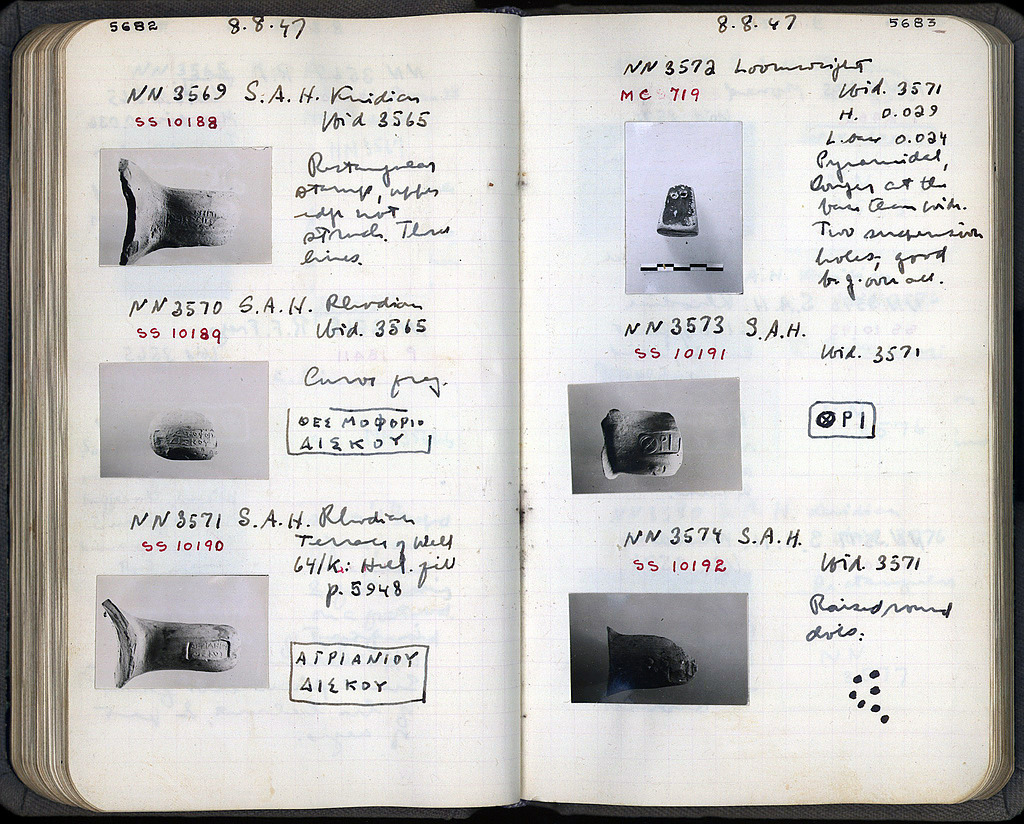 5682
8.8.47
NN 3569 S.A.H. Knidian
SS 10188
Ibid. 3565
Rectangular
stamp, upper
edge not
struck. Three
lines.
NN 3570 S.A.H. Rhodian
SS 10189
Ibid. 3565
Curve frag.
ΘΕΣΜΟΦΟΡΙΟ
ΔΙΣΚΟΥ
NN 3571 S.A.H. Rhodian
SS 10190
Terrace of Well
64/K: Hell. fill
p. 5948
ΑΓΡΙΑΝΙΟΥ
ΔΙΣΚΟΥ
5683
8.8.47
NN 3572 Loomweight
MC 719
Ibid. 3571
H. 0.029
L. base 0.024
Pyramidal,
longer at the
base than wide.
Two suspension
holes, good
b.g. over all.
NN 3573 S.A.H.
SS 10191
Ibid. 3571
⊗ΡΙ
NN 3574 S.A.H.
SS 10192
Ibid. 3571
Raised round
dots: